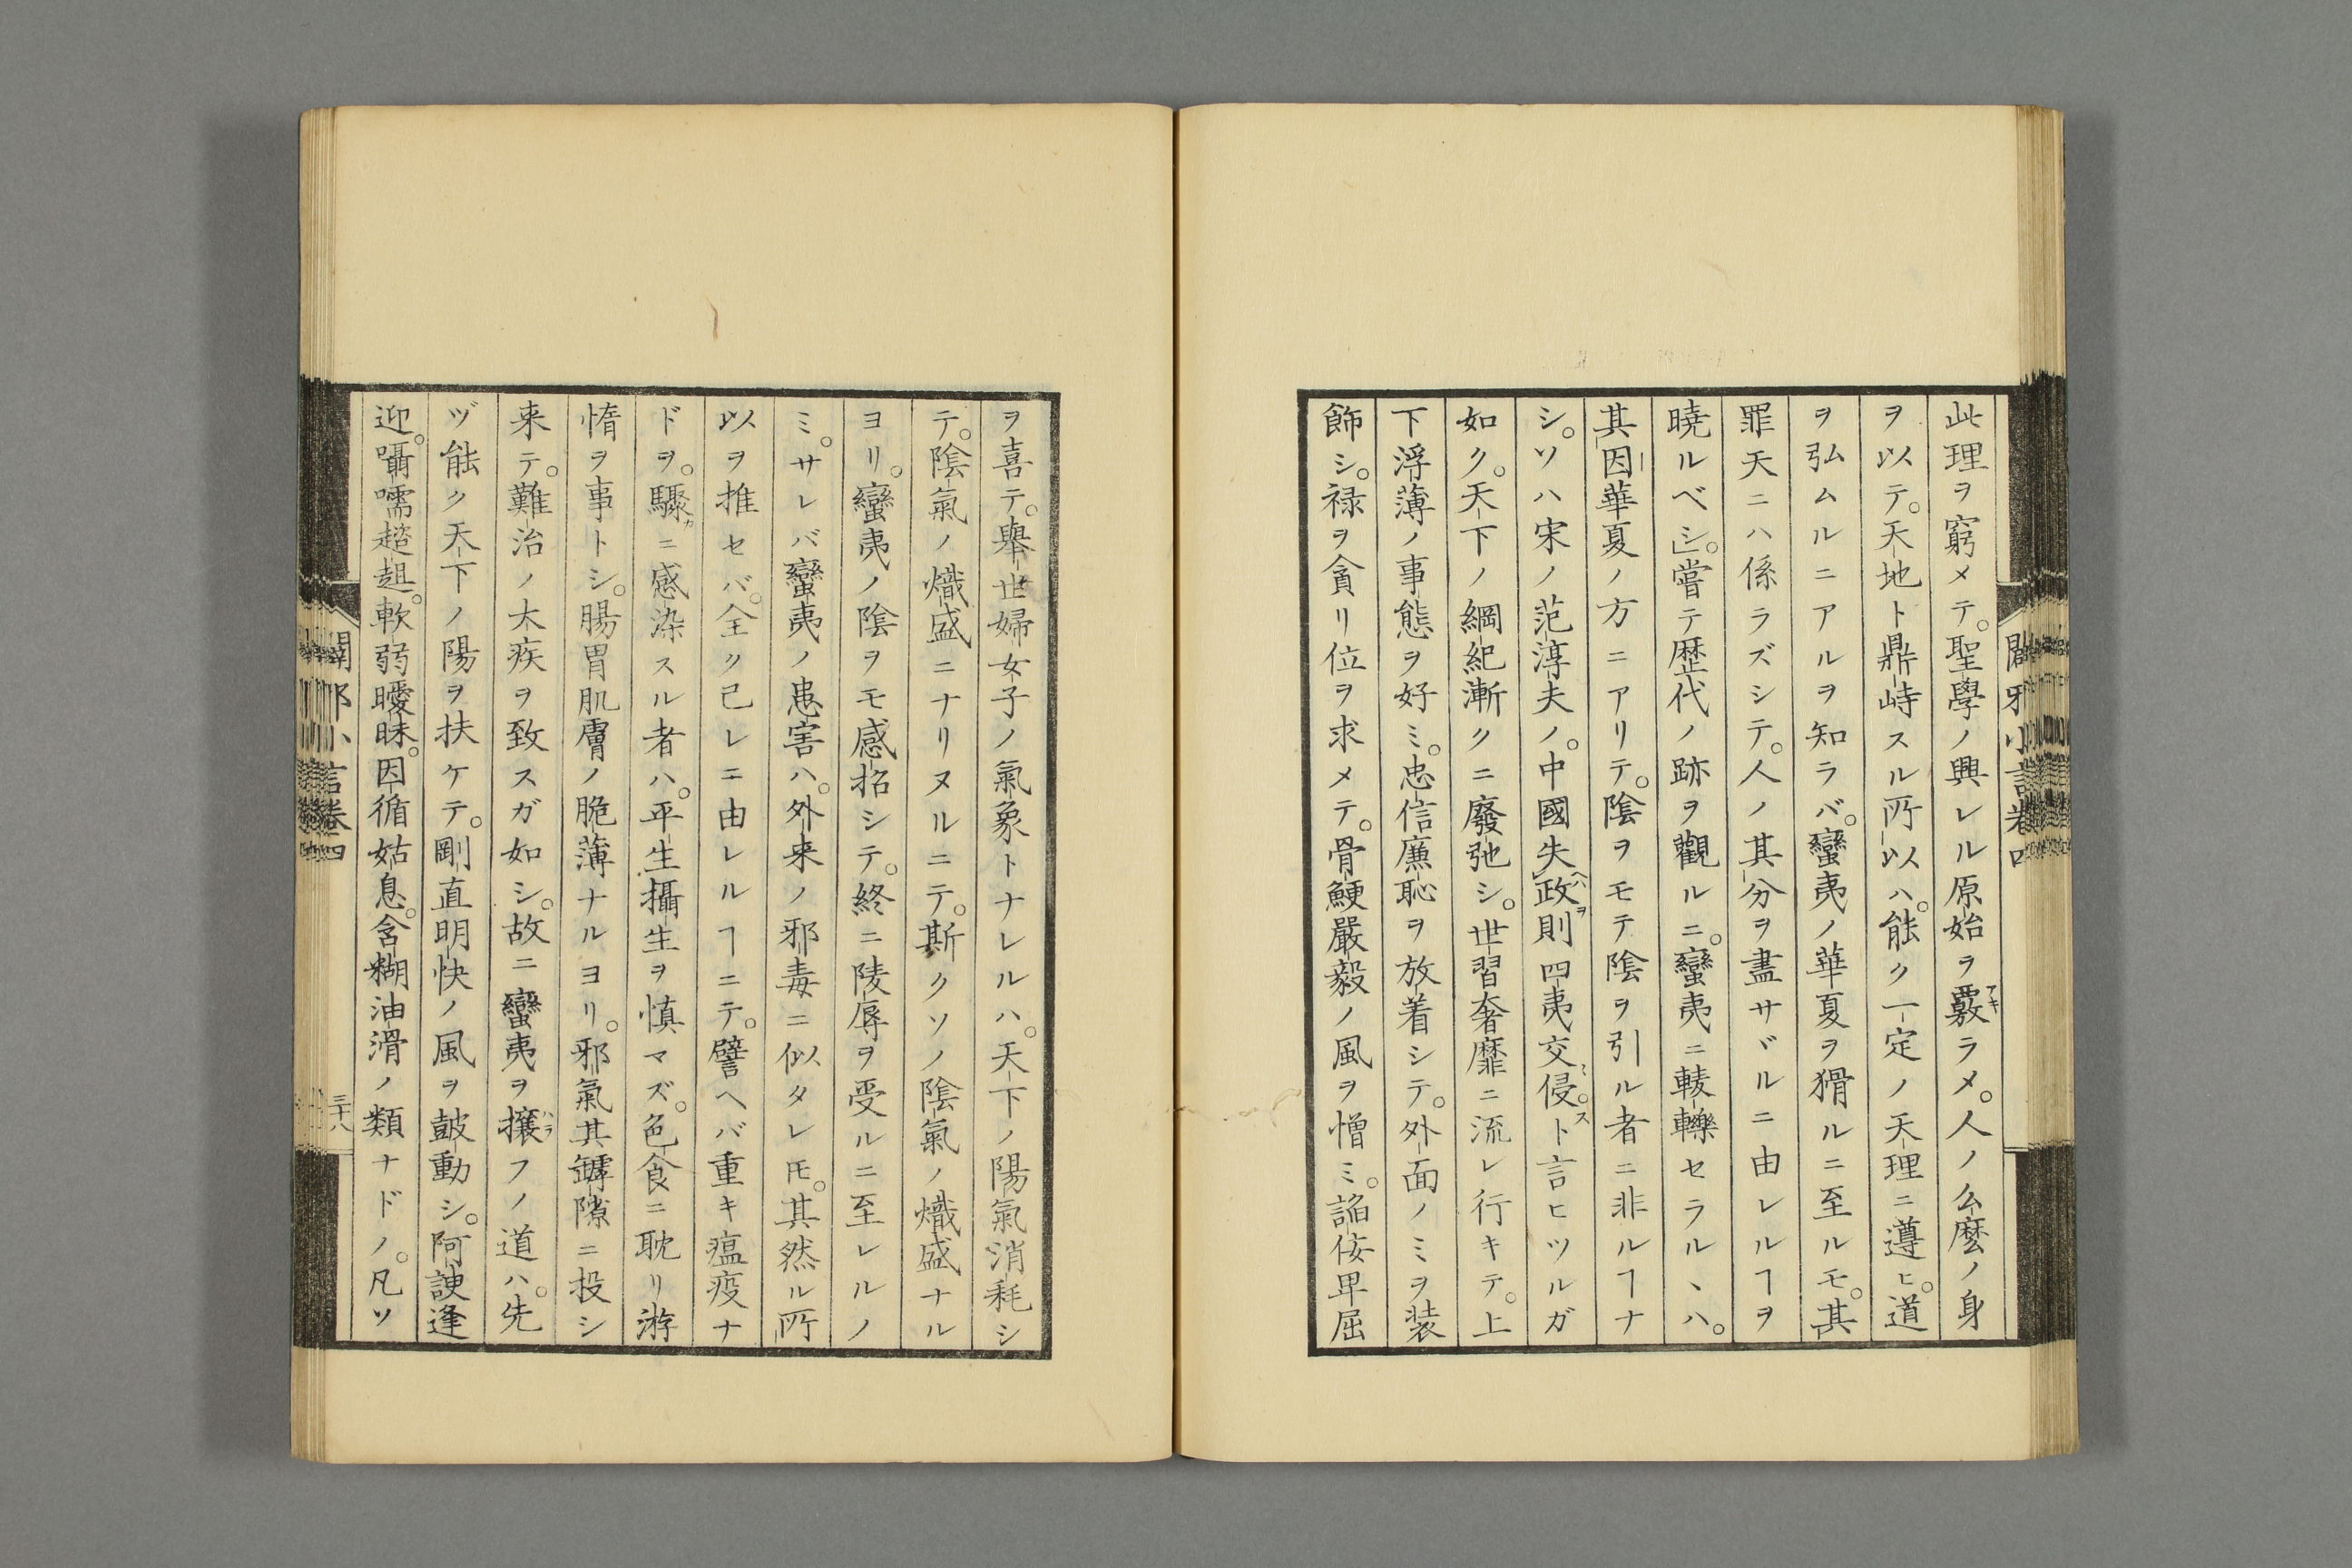 此理ヲ窮メテ。聖學ノ興レル原始ヲ覈ラメ。人ノ幺麼ノ身
ヲ以テ。天地ト鼎峙スル所以ハ。能ク一定ノ天理ニ遵ヒ。道
ヲ弘ムルニアルヲ知ラバ。蠻夷ノ華夏ヲ猾ルニ至ルモ。其
罪天ニハ係ラズシテ。人ノ其分ヲ盡サヾルニ由レルヿヲ
曉ルベシ」。嘗テ歴代ノ跡ヲ觀ルニ。蠻夷ニ轃轢セラルヽハ。
其因華夏ノ方ニアリテ。陰ヲモテ陰ヲ引ル者ニ非ルヿナ
シ。ソハ宋ノ范淳夫ノ。中國失政則四夷交侵。ト言ヒツルガ
如ク。天下ノ綱紀漸クニ廢弛シ。世習奢靡ニ流レ行キテ。上
下浮薄ノ事態ヲ好ミ。忠信廉恥ヲ放着シテ。外面ノミヲ装
飾シ。禄ヲ貪リ位ヲ求メテ。骨鯁嚴毅ノ風ヲ憎ミ。諂佞卑屈
闢邪小言卷四
ヲ喜テ。擧世婦女子ノ氣象トナレルハ。天下ノ陽氣消耗シ
テ。陰氣ノ熾盛ニナリヌルニテ。斯クソノ陰氣ノ熾盛ナル
ヨリ。蠻夷ノ陰ヲモ感招シテ。終ニ陵辱ヲ受ルニ至レルノ
ミ。サレバ蠻夷ノ患害ハ。外来ノ邪毒ニ似タレ𪜈。其然ル所
以ヲ推セバ。全ク己レニ由レルヿニテ。譬ヘバ重キ瘟疫ナ
ドヲ。驟ニ感染スル者ハ。平生攝生ヲ慎マズ。色食ニ耽リ游
惰ヲ事トシ。腸胃肌膚ノ脆薄ナルヨリ。邪氣其罅隙ニ投シ
来テ。難治ノ大疾ヲ致スガ如シ。故ニ蠻夷ヲ攘フノ道ハ。先
ヅ能ク天下ノ陽ヲ扶ケテ。剛直明快ノ風ヲ皷動シ。阿諛逢
迎。囁嚅趦趄。軟弱曖昧。因循姑息。含糊油滑ノ類ナドノ。凡ソ
闢邪小言卷四
三十八